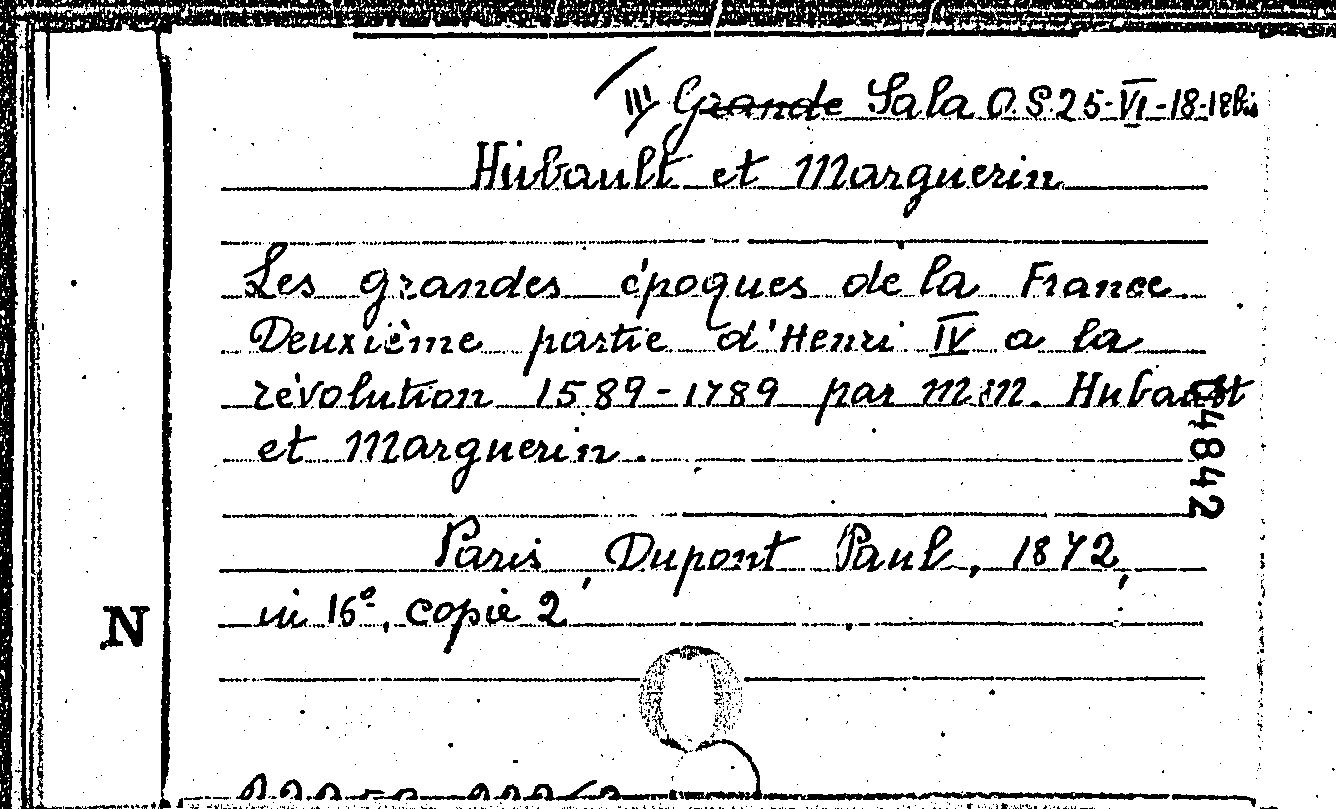 III Grande Sala O.S.25-VI-18-18bis
Hubault et Marguerin
Les grandes époques de la France
Deuxième partie d'Henri IV a la
révolution 1589-1789 par M.M. Hubault
et Marguerin.
Paris, Dupont Paul, 1872,
in 16º, copie 2
N